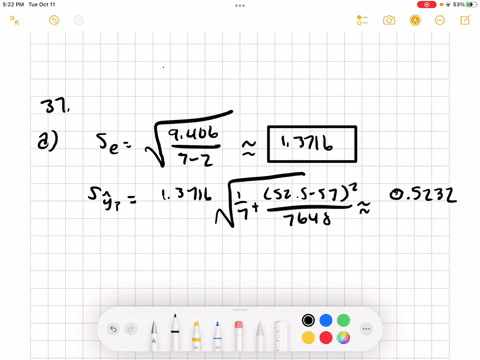 5:22 PM Tue Oct 11
53%
37.
a) Se = √(9.406/7-2) ≈ 1.3716
Sŷp = 1.3716 √(1/7 + (52.5-57)²/7648) ≈ 0.5232